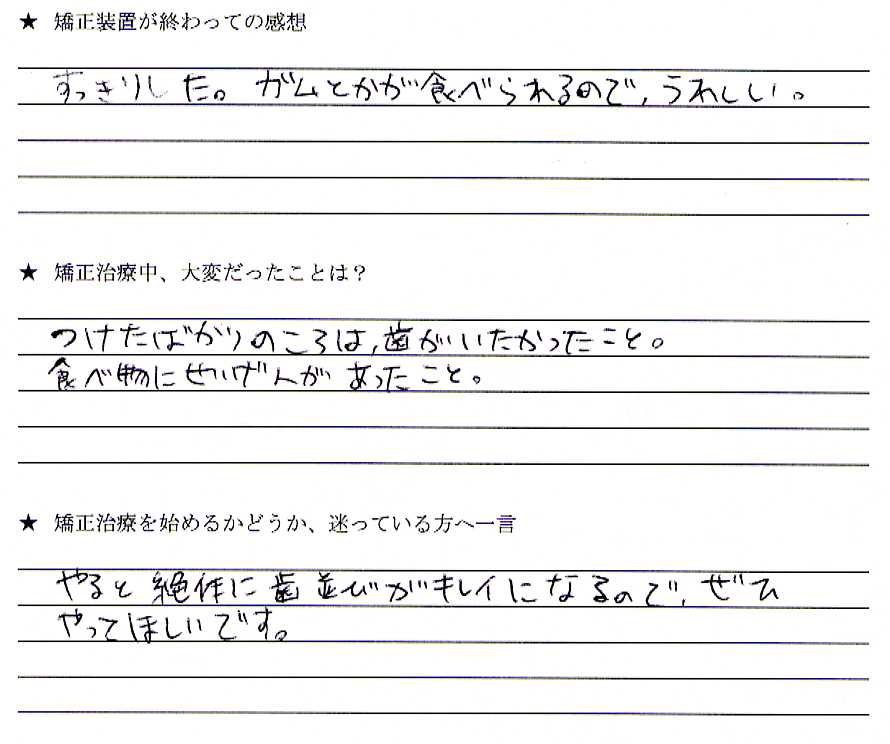 ★ 矯正装置が終わっての感想
すっきりした。ガムとかが食べられるので、うれしい。
★ 矯正治療中、大変だったことは？
つけたばかりのころは、歯がいたかったこと。
食べ物にせいげんがあったこと。
★ 矯正治療を始めるかどうか、迷っている方へ一言
やると絶体に歯並びがキレイになるので、ぜひ
やってほしいです。